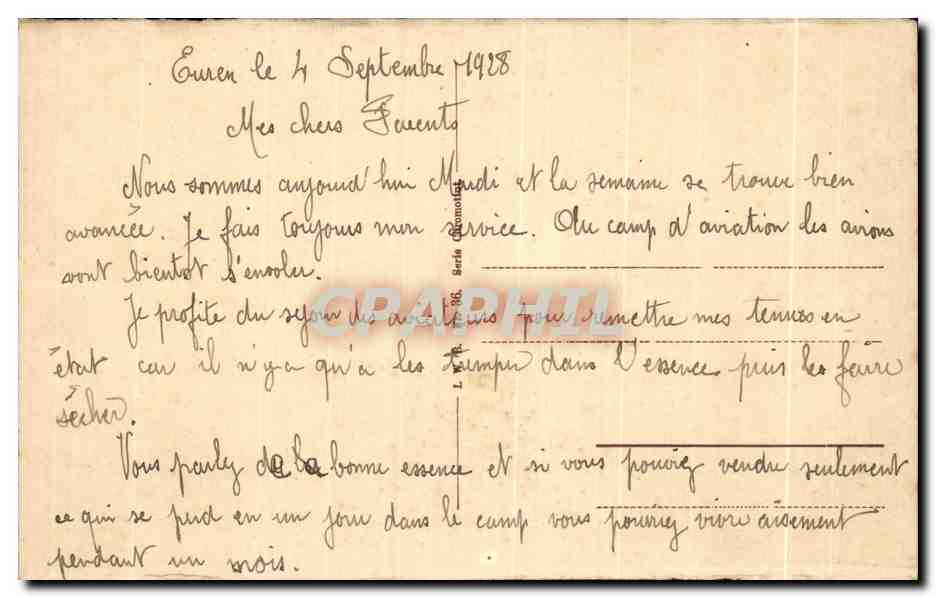 Euren le 4 Septembre 1928
Mes chers Parents
Nous sommes aujourd'hui Mardi et la semaine se trouve bien
avancée. Je fais toujours mon service. Au camp d'aviation les avions
vont bientot s'envoler.
Je profite du sejour des aviateurs pour remettre mes tenues en
état car il n'y a qu'a les tremper dans l'essence puis les faire
sécher.
Vous parlez de la bonne essence et si vous pouviez vendre seulement
ce qui se perd en un jour dans le camp vous pourriez vivre aisement
pendant un mois.
36. Serie Chromotint
CPAPHIL